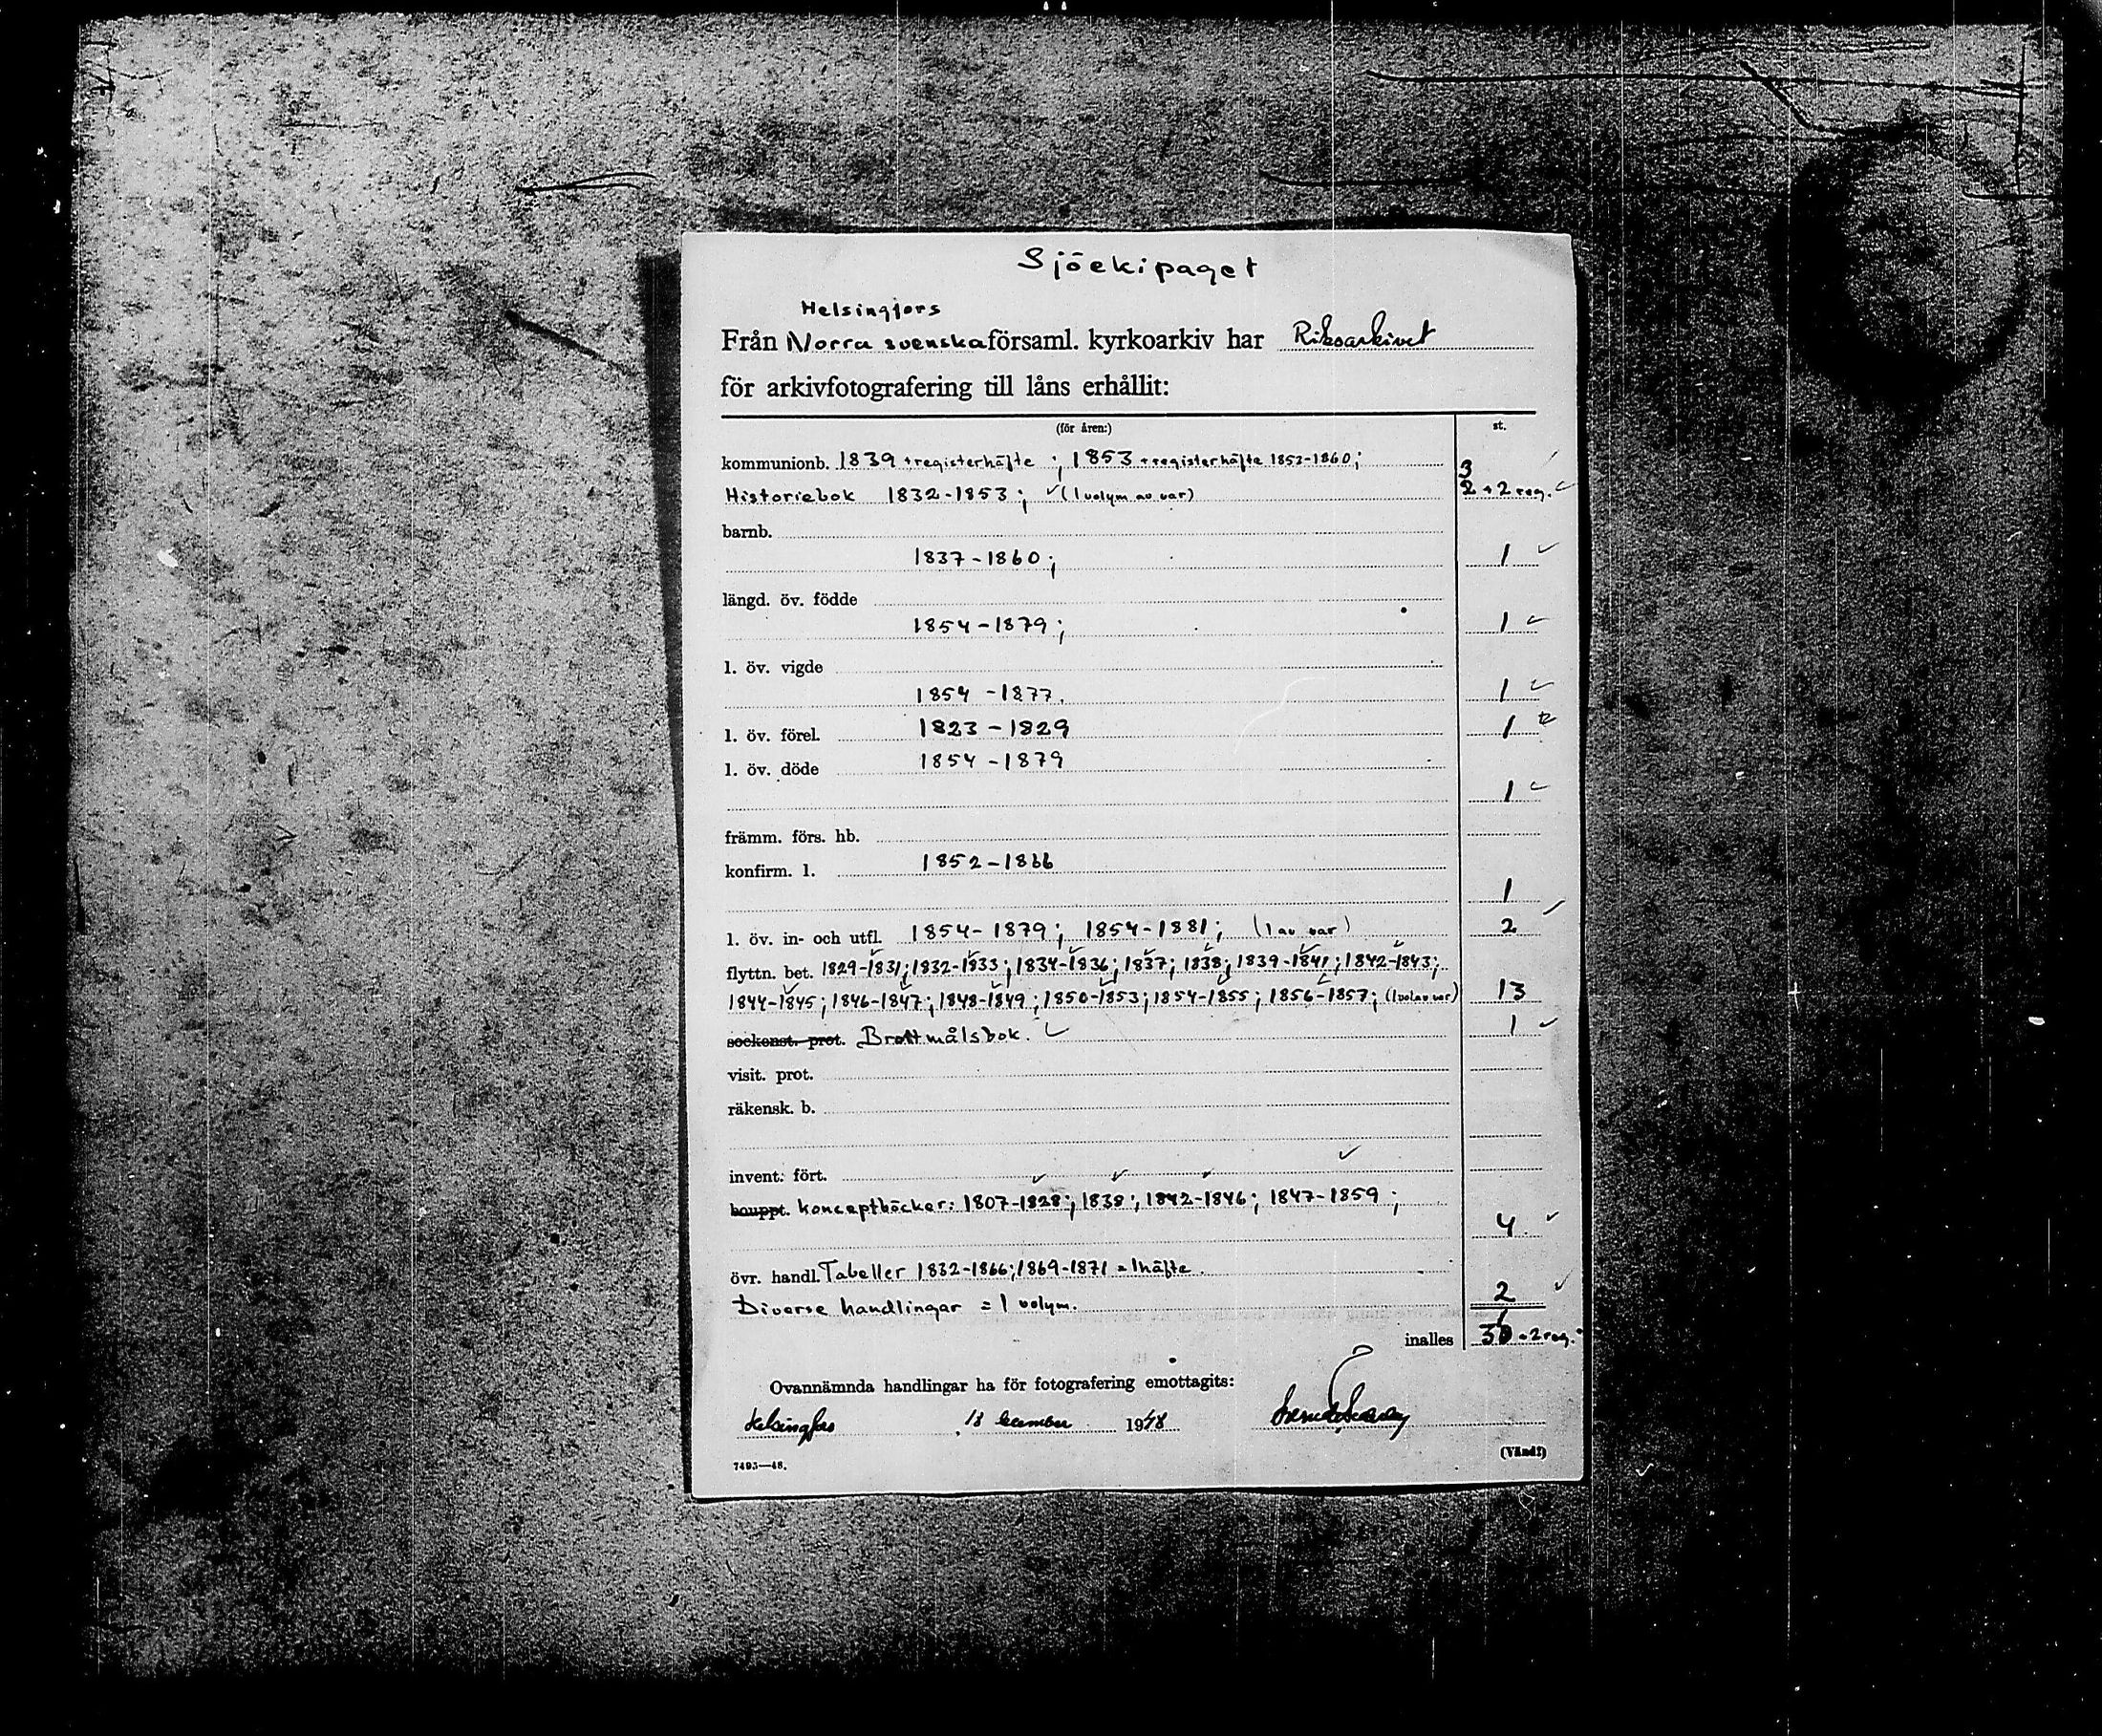 Sjöekipaget
Helsingfors
Från Norra svenska församl. kyrkoarkiv har Riksarkivet
för arkivfotografering till låns erhållit:
(för åren:) st.
kommunionb. 1839 + registerhäfte ; 1853 + registerhäfte 1853-1860; 3
Historiebok 1832-1853; ✓ (1 volym av var) 2 + 2 reg. ✓
barnb.
1837-1860; 1 ✓
längd. öv. födde
1854-1879; 1 ✓
l. öv. vigde
1854-1877. 1 ✓
l. öv. förel. 1823-1829 1
l. öv. döde 1854-1879
1 ✓
främm. förs. hb.
konfirm. l. 1852-1866
1
l. öv. in- och utfl. 1854-1879; 1854-1881; (1 av var) 2 ✓
flyttn. bet. 1829-1831; 1832-1833; 1834-1836; 1837; 1838; 1839-1841; 1842-1843;
1844-1845; 1846-1847; 1848-1849; 1850-1853; 1854-1855; 1856-1857; (1 vol av var) 13
sockenst. prot. Brottmålsbok. ✓ 1 ✓
visit. prot.
räkensk. b.
invent. fört.
bouppt. konceptböcker: 1807-1828; 1838; 1842-1846; 1847-1859;
4 ✓
övr. handl. Tabeller 1832-1866; 1869-1871 = 1 häfte.
Diverse handlingar = 1 volym. 2 ✓
inalles 30 + 2 reg.
Ovannämnda handlingar ha för fotografering emottagits:
Helsingfors, 13 december 1948
(Vänd!)
7495—48.